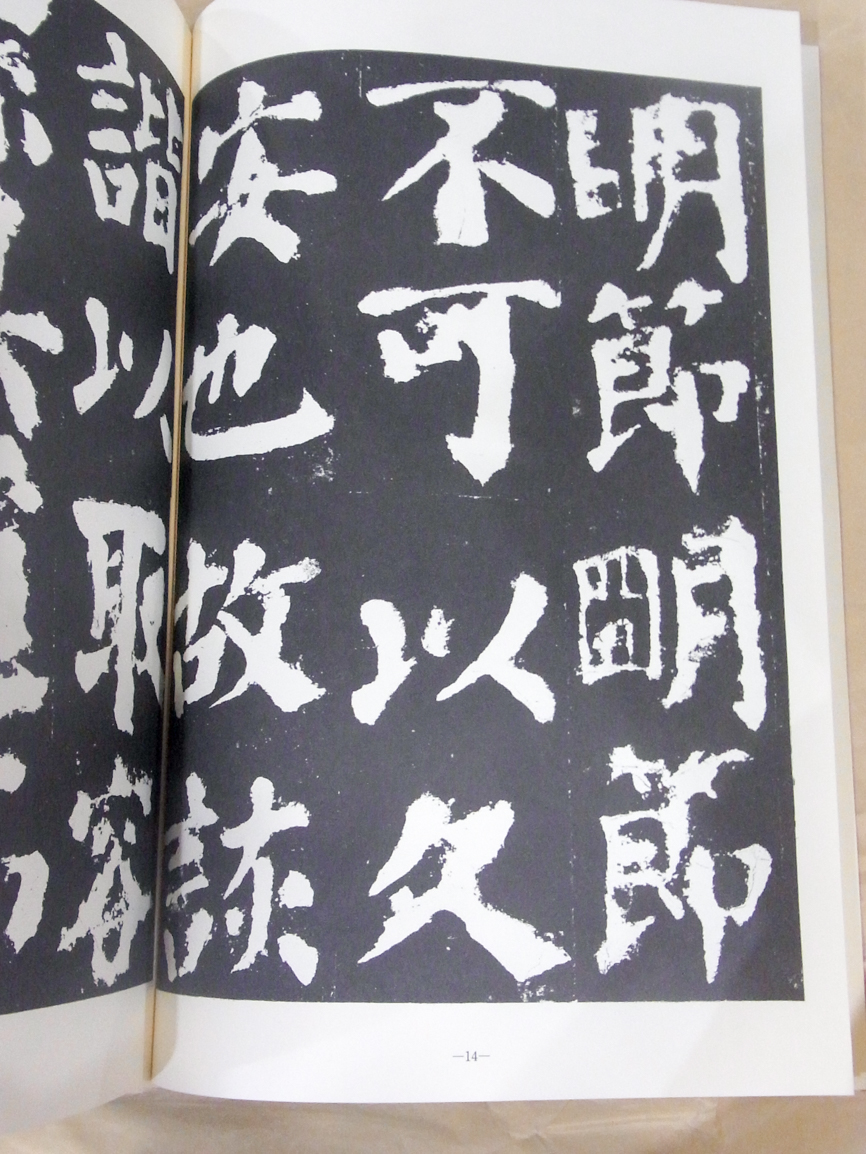 明節朙節
不可以久
安也故詼
諧以取容
—14—